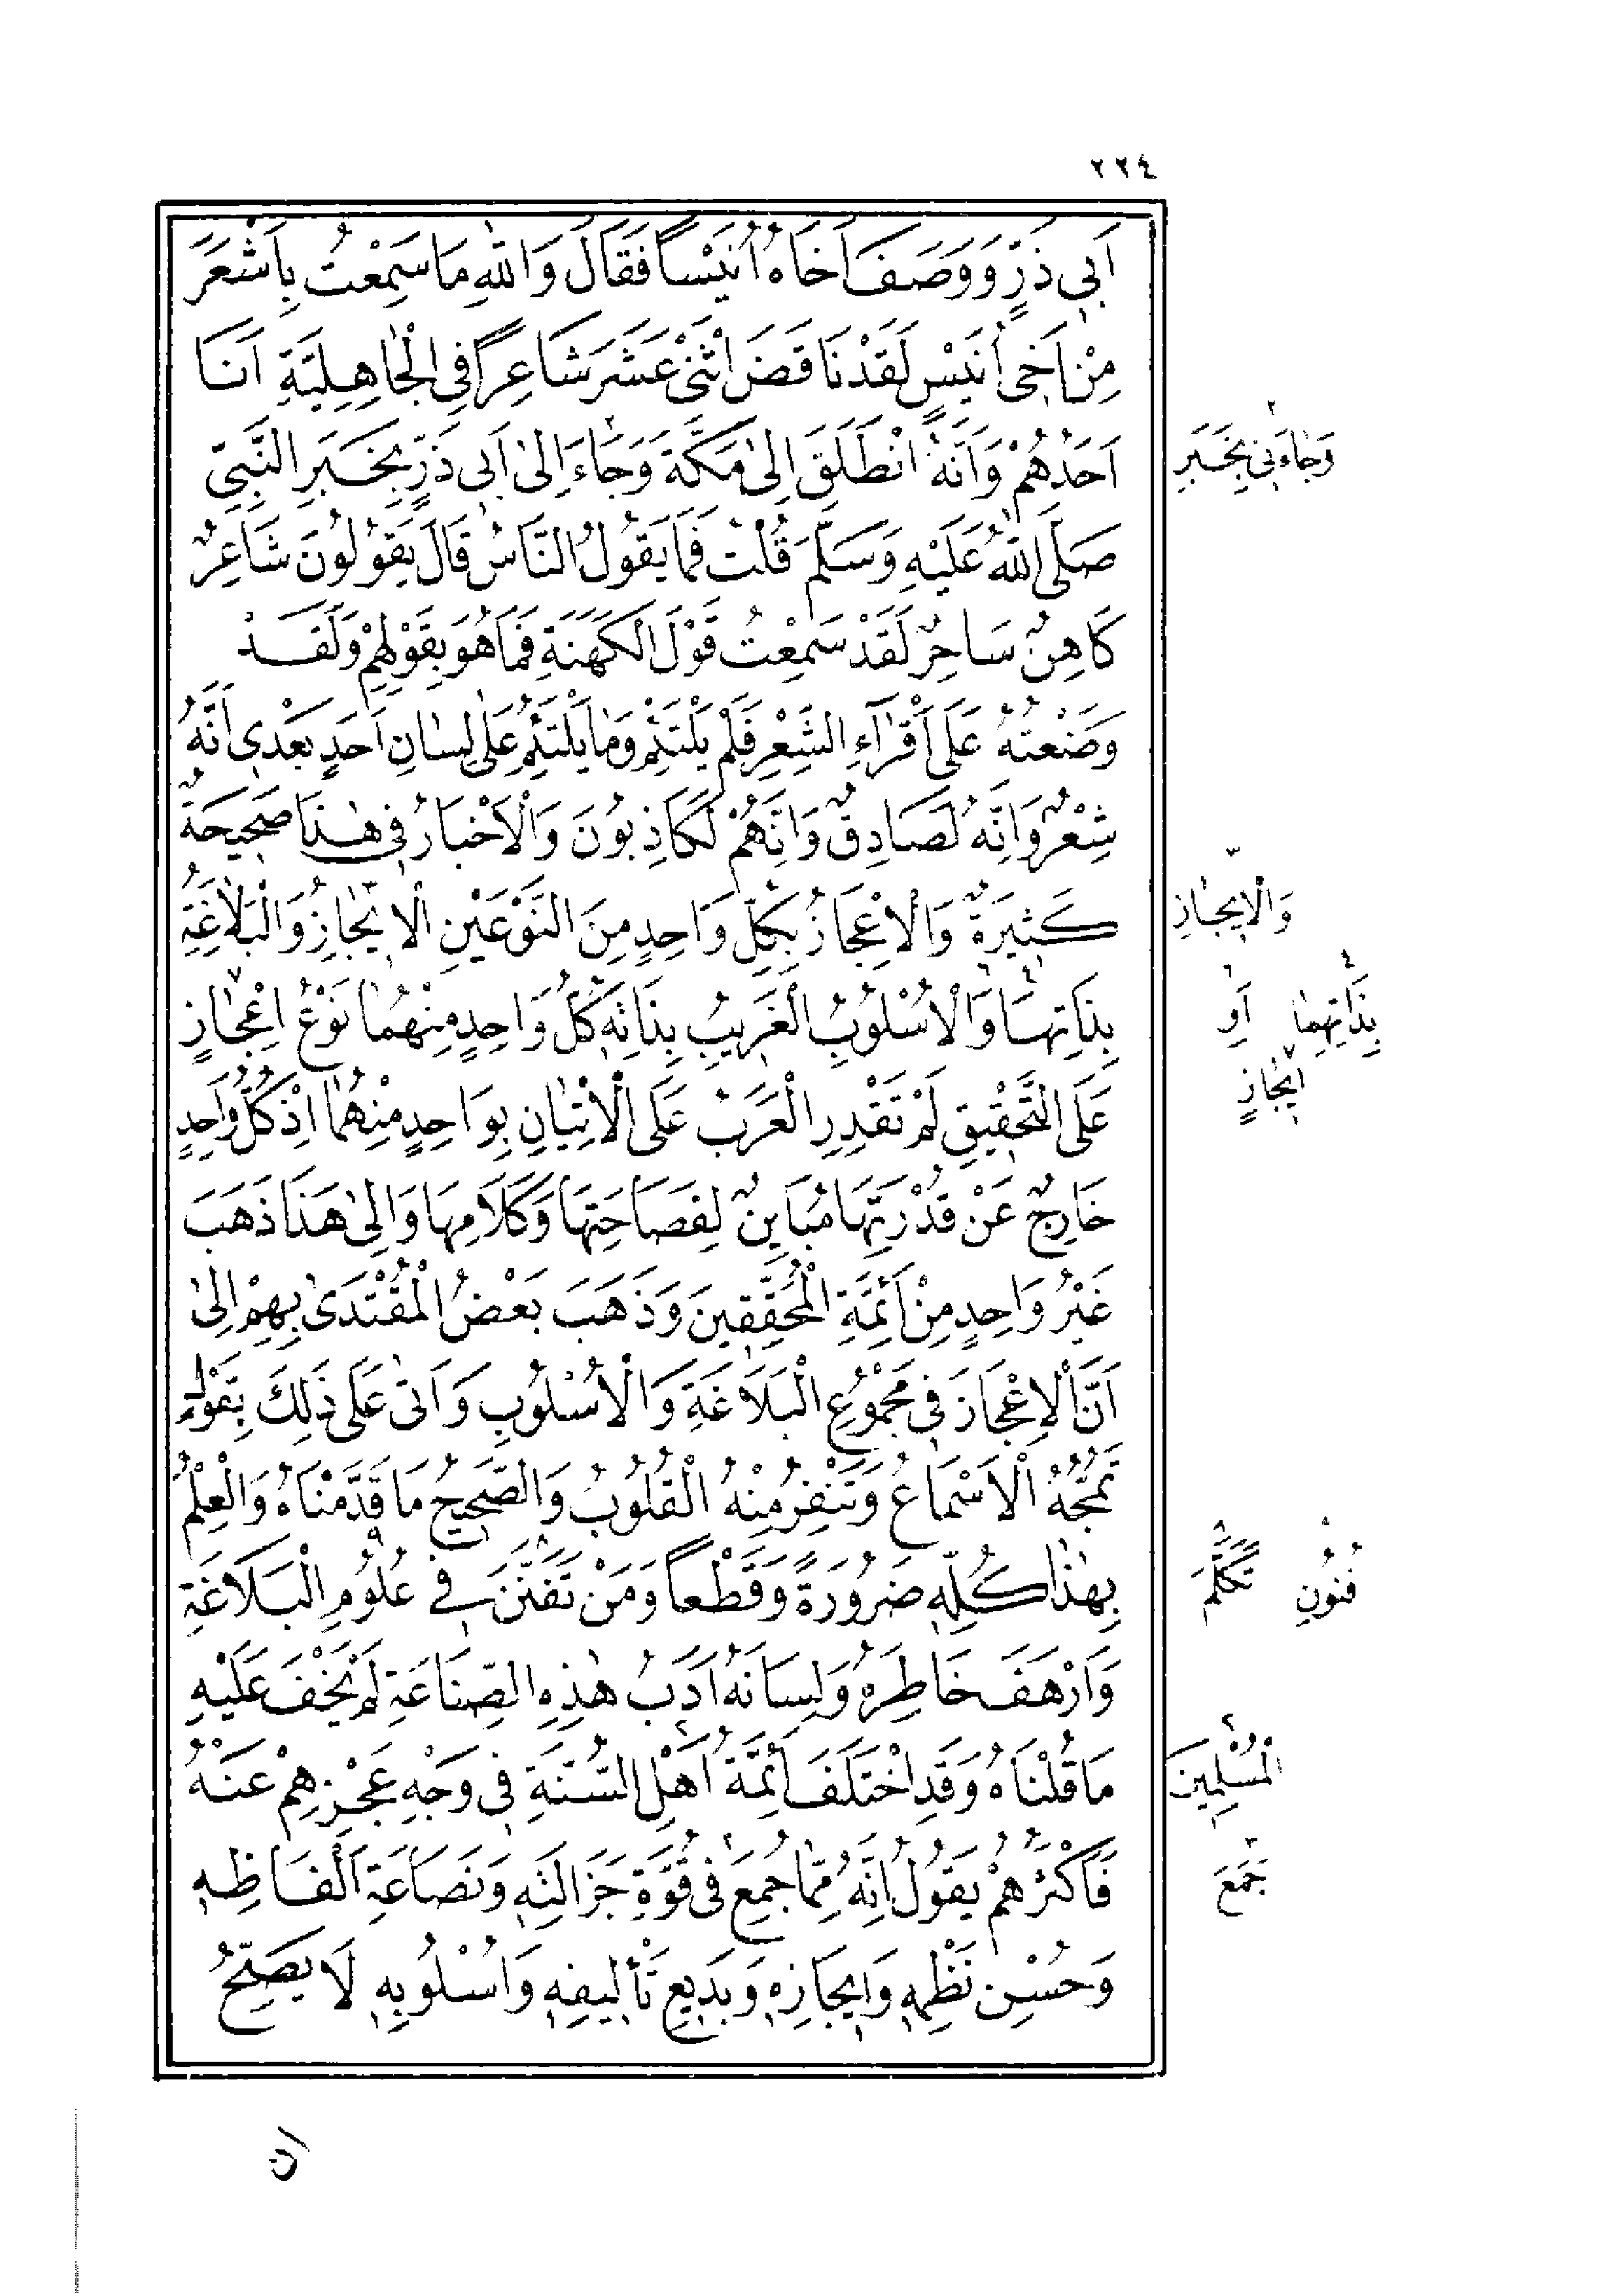 ٢٢٤
اَبِي ذَرٍّ وَوَصَفَ اَخَاهُ اُنَيْسًا فَقَالَ وَاللّٰهِ مَا سَمِعْتُ بِاَشْعَرَ
مِنْ اَخِي اُنَيْسٍ لَقَدْ نَاقَضَ اثْنَيْ عَشَرَ شَاعِرًا فِي الْجَاهِلِيَّةِ اَنَا
اَحَدُهُمْ وَاَنَّهُ انْطَلَقَ اِلٰى مَكَّةَ وَجَاءَ اِلٰى اَبِي ذَرٍّ بِخَبَرِ النَّبِيِّ
وَجَاءَنِي بِخَبَرِ
صَلَّى اللّٰهُ عَلَيْهِ وَسَلَّمَ قُلْتُ فَمَا يَقُولُ النَّاسُ قَالَ يَقُولُونَ شَاعِرٌ
كَاهِنٌ سَاحِرٌ لَقَدْ سَمِعْتُ قَوْلَ الْكَهَنَةِ فَمَا هُوَ بِقَوْلِهِمْ وَلَقَدْ
وَضَعْتُهُ عَلَى اَقْرَاءِ الشِّعْرِ فَلَمْ يَلْتَئِمْ وَمَا يَلْتَئِمُ عَلَى لِسَانِ اَحَدٍ بَعْدِي اَنَّهُ
شِعْرٌ وَاِنَّهُ لَصَادِقٌ وَاِنَّهُمْ لَكَاذِبُونَ وَالْاَخْبَارُ فِي هٰذَا صَحِيحَةٌ
كَثِيرَةٌ وَالْاِعْجَازُ بِكُلِّ وَاحِدٍ مِنَ النَّوْعَيْنِ الْاِيجَازُ وَالْبَلَاغَةُ
وَالْاِيجَازِ
بِذَاتِهَا وَالْاُسْلُوبُ الْغَرِيبُ بِذَاتِهِ كُلُّ وَاحِدٍ مِنْهُمَا نَوْعُ اِعْجَازٍ
بِذَاتِهِمَا اَوِ
اِيجَازٍ
عَلَى التَّحْقِيقِ لَمْ تَقْدِرِ الْعَرَبُ عَلَى الْاِتْيَانِ بِوَاحِدٍ مِنْهُمَا اِذْ كُلُّ وَاحِدٍ
خَارِجٌ عَنْ قُدْرَتِهَا مُبَايِنٌ لِفَصَاحَتِهَا وَكَلَامِهَا وَاِلٰى هٰذَا ذَهَبَ
غَيْرُ وَاحِدٍ مِنْ اَئِمَّةِ الْمُحَقِّقِينَ وَذَهَبَ بَعْضُ الْمُقْتَدٰى بِهِمْ اِلٰى
اَنَّ الْاِعْجَازَ فِي مَجْمُوعِ الْبَلَاغَةِ وَالْاُسْلُوبِ وَاَتٰى عَلَى ذٰلِكَ بِقَوْلٍ
تَمُجُّهُ الْاَسْمَاعُ وَتَنْفِرُ مِنْهُ الْقُلُوبُ وَالصَّحِيحُ مَا قَدَّمْنَاهُ وَالْعِلْمُ
بِهٰذَا كُلِّهِ ضَرُورَةً وَقَطْعًا وَمَنْ تَفَنَّنَ فِي عُلُومِ الْبَلَاغَةِ
فُنُونِ تَكَلَّمَ
وَاَرْهَفَ خَاطِرَهُ وَلِسَانَهُ اَدَبُ هٰذِهِ الصِّنَاعَةِ لَمْ يَخْفَ عَلَيْهِ
مَا قُلْنَاهُ وَقَدِ اخْتَلَفَ اَئِمَّةُ اَهْلِ السُّنَّةِ فِي وَجْهِ عَجْزِهِمْ عَنْهُ
الْمُسْلِمِينَ
فَاَكْثَرُهُمْ يَقُولُ اِنَّهُ مِمَّا جُمِعَ فِي قُوَّةِ جَزَالَتِهِ وَنَصَاعَةِ اَلْفَاظِهِ
جَمَعَ
وَحُسْنِ نَظْمِهِ وَاِيجَازِهِ وَبَدِيعِ تَأْلِيفِهِ وَاُسْلُوبِهِ لَا يَصِحُّ
ان